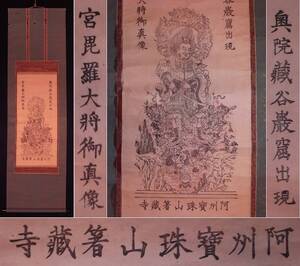 奥院藏谷巌窟出現
宮毘羅大將御真像
谷巌窟出現
大將御真像
寺藏箸山珠寶州阿
寺藏箸山珠寶州阿